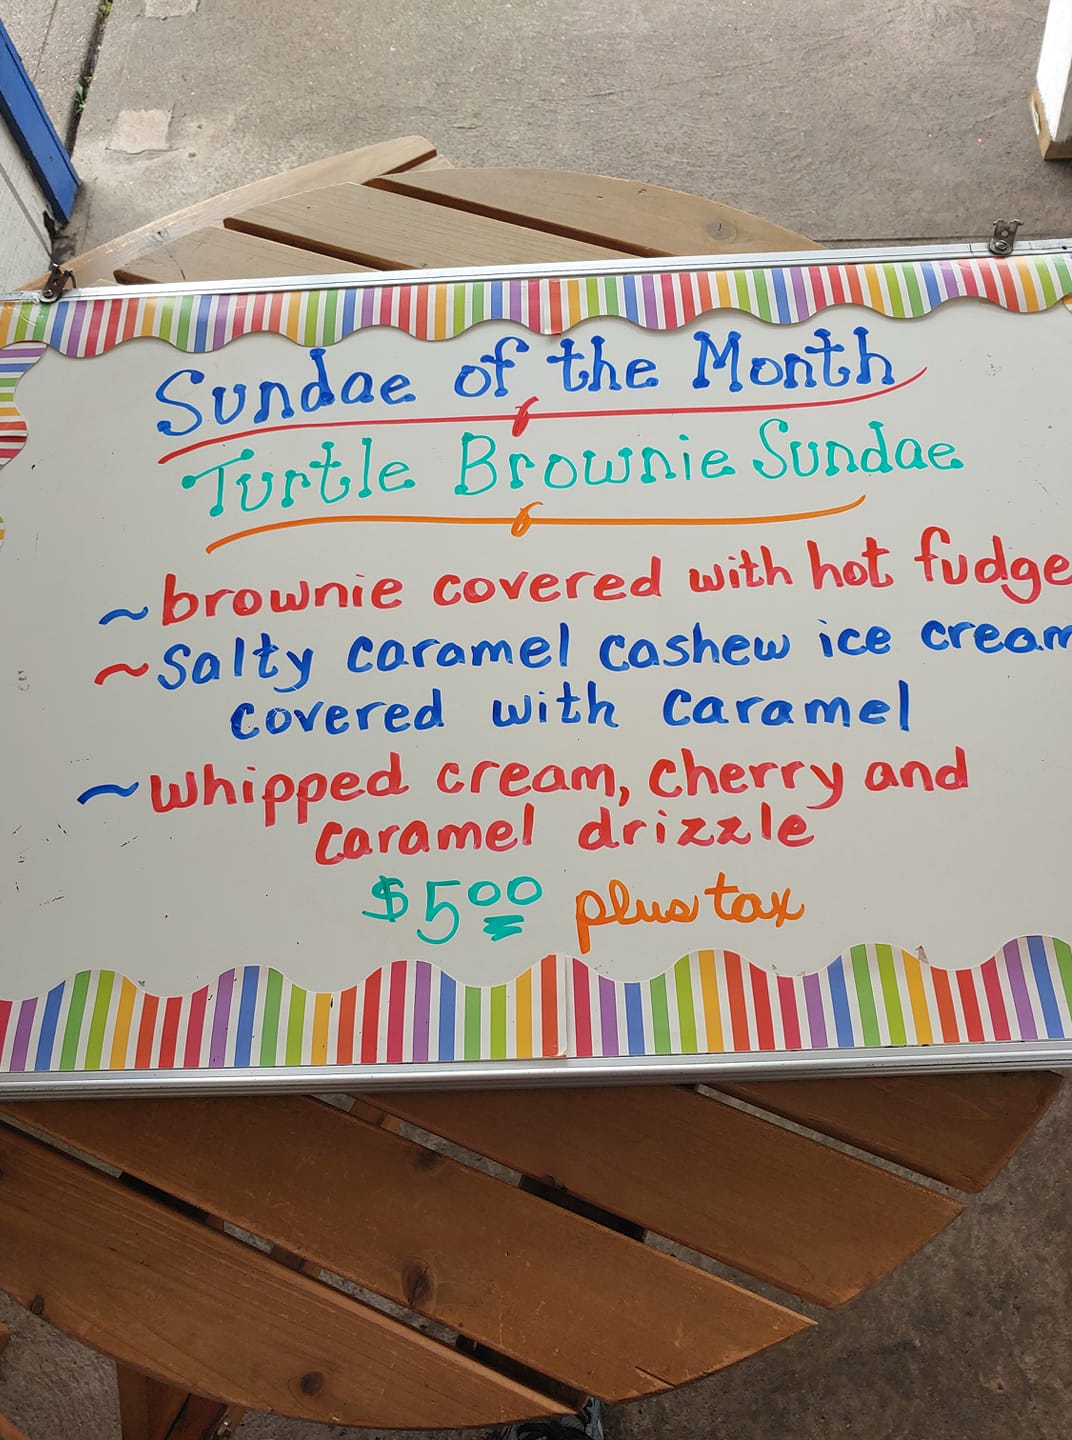 Sundae of the Month
Turtle Brownie Sundae
~brownie covered with hot fudge
~Salty caramel cashew ice cream
covered with caramel
~whipped cream, cherry and
caramel drizzle
$5.00 plus tax